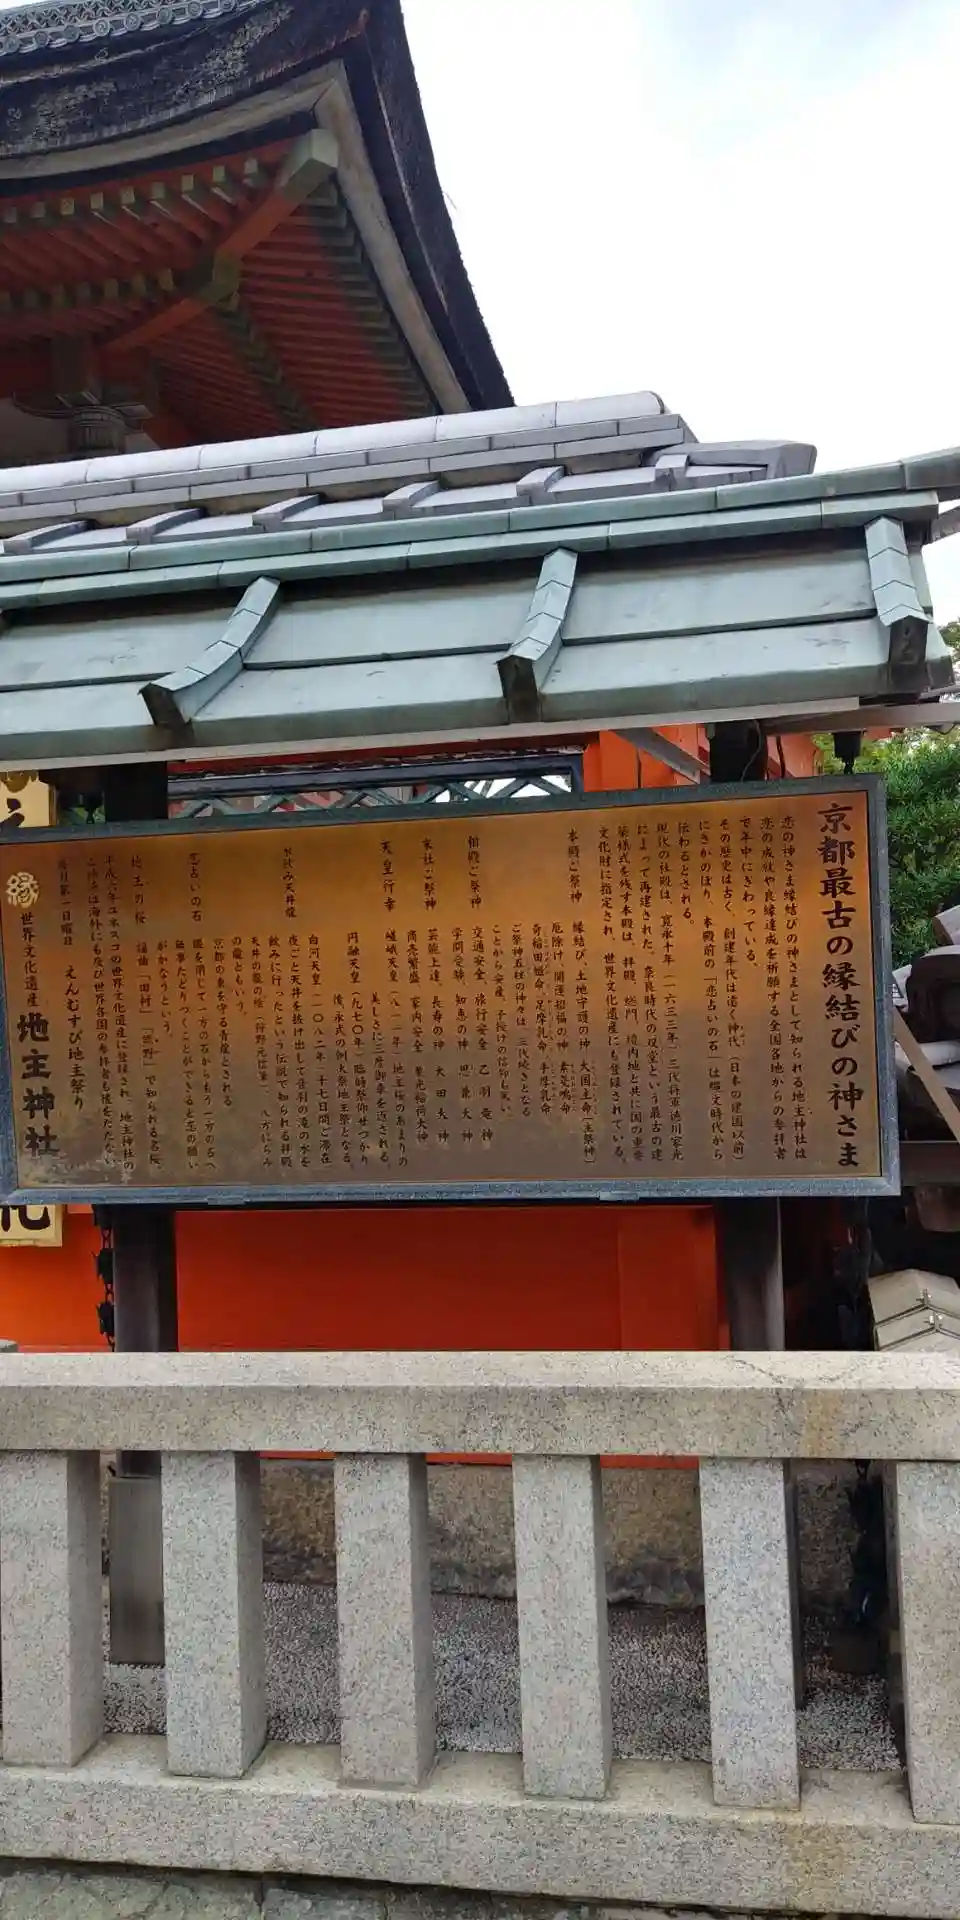 京都最古の縁結びの神さま
恋の神さま縁結びの神さまとして知られる地主神社は
恋の成就や良縁達成を祈願する全国各地からの参拝者
で年中にぎわっている。
その歴史は古く、創建年代は遠く神代（日本の建国以前）
にさかのぼり、本殿前の「恋占いの石」は縄文時代から
伝わるとされる。
現在の社殿は、寛永十年（一六三三年）三代将軍徳川家光
によって再建された。奈良時代の双堂という最古の建
築様式を残す本殿は、拝殿、総門、境内地と共に国の重要
文化財に指定され、世界文化遺産にも登録されている。
本殿ご祭神 縁結び、土地守護の神 大国主命（主祭神）
厄除け、開運招福の神 素戔嗚命
奇稲田姫命、足摩乳命、手摩乳命
ご祭神五柱の神々は、三代続きとなる
ことから安産、子授けの信仰も篤い
相殿ご祭神 交通安全、旅行安全 乙羽竜神
学問、受験、知恵の神 思兼大神
末社ご祭神 芸能上達、長寿の神 大田大神
商売繁盛、家内安全 栗光稲荷大神
天皇行幸 嵯峨天皇（八一一年）地主桜のあまりの
美しさに三度御車を返される。
円融天皇（九七〇年）臨時祭仰せつかり
後、永式の例大祭地主祭となる。
白河天皇（一〇八二年）十七日間ご滞在
水飲み天井龍 夜ごと天井を抜け出して音羽の滝の水を
飲みに行ったという伝説で知られる拝殿
天井の龍の絵（狩野元信筆）。八方にらみ
の龍ともいう。
京都の東を守る青龍とされる
恋占いの石 眼を閉じて一方の石からもう一方の石へ
無事たどりつくことができると恋の願い
がかなうという。
地主の桜 謡曲「田村」「熊野」で知られる名桜
平成六年ユネスコの世界文化遺産に登録され、地主神社の
ご神徳は海外にも及び世界各国の参拝者も後をたたない
毎月第一日曜日 えんむすび地主祭り
縁 世界文化遺産 地主神社